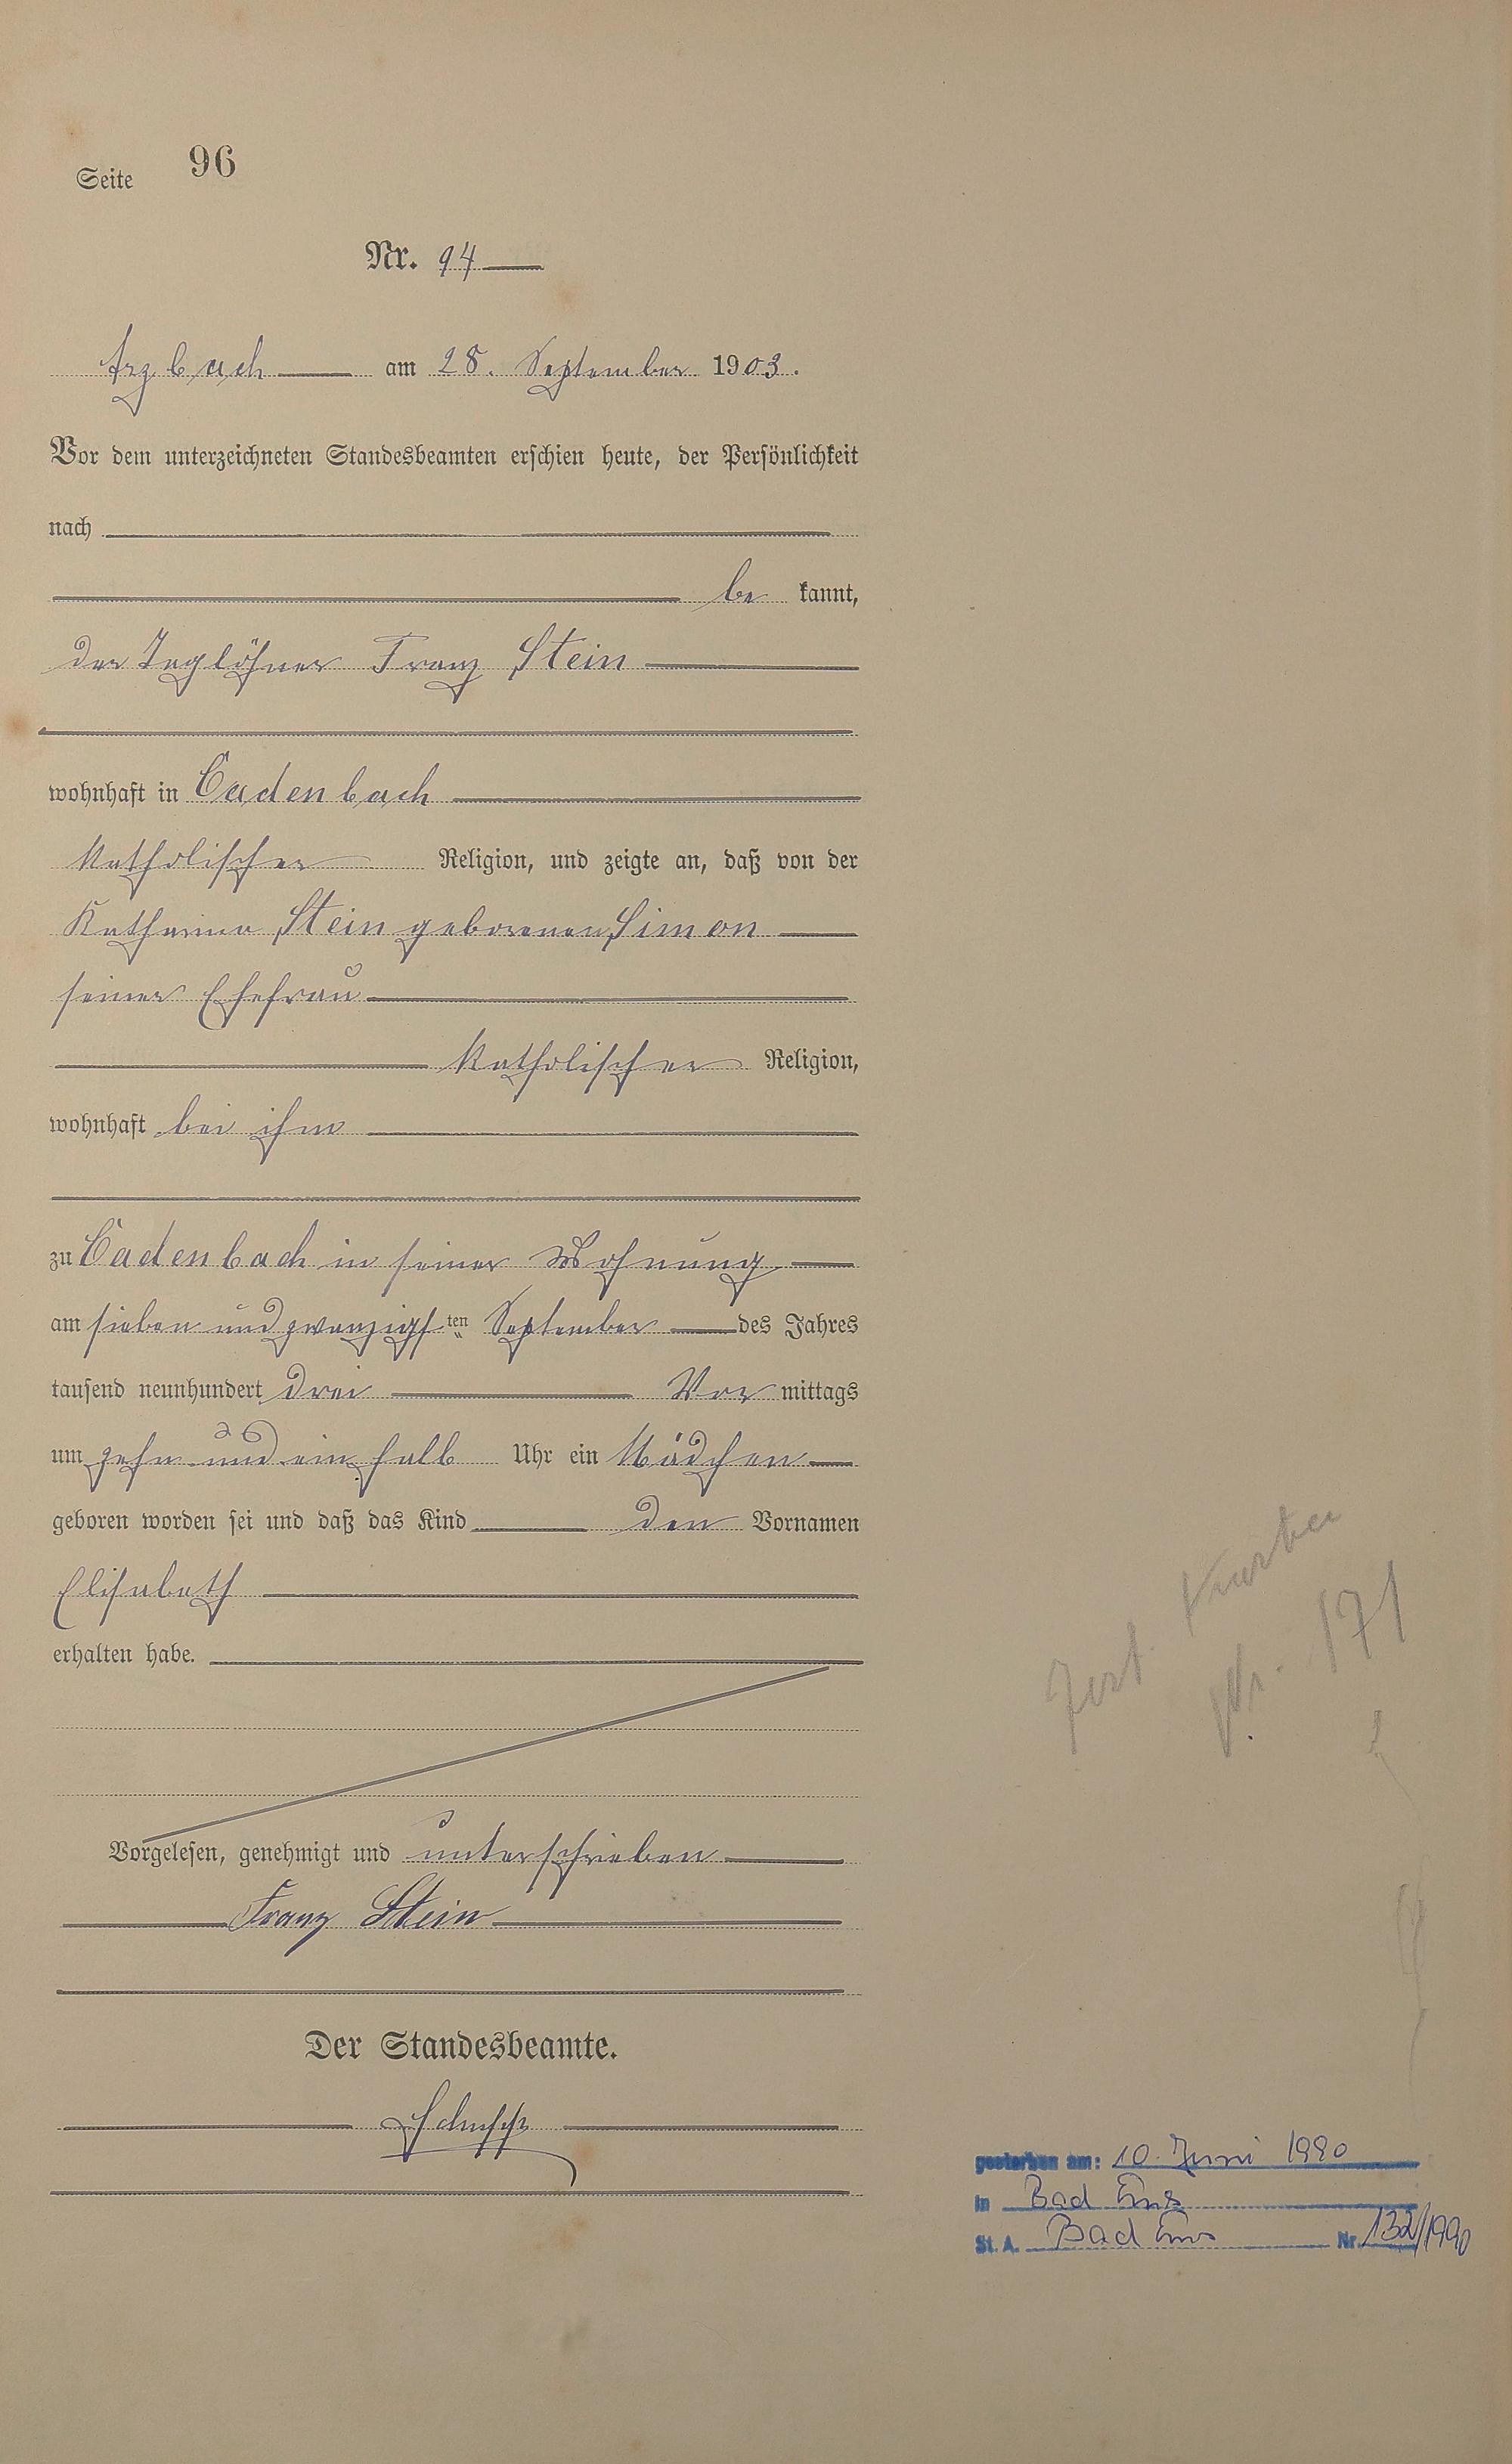 Seite 96
Nr. 94
Arzbach am 28. September 1903.
Vor dem unterzeichneten Standesbeamten erschien heute, der Persönlichkeit
nach
be kannt,
der Taglöhner Franz Stein
wohnhaft in Cadenbach
katholischer Religion, und zeigte an, daß von der
Katharina Stein geborenen Simon
seiner Ehefrau
katholischer Religion,
wohnhaft bei ihm
zu Cadenbach in seiner Wohnung
am sieben und zwanzigsten September des Jahres
tausend neunhundert drei Vor mittags
um zehn und ein halb Uhr ein Mädchen
geboren worden sei und daß das Kind den Vornamen
Elisabeth
erhalten habe.
Vorgelesen, genehmigt und unterschrieben
Franz Stein
Der Standesbeamte.
Nr. 171
gestorben am: 10. Juni 1990
in Bad Ems
St. A. Bad Ems Nr. 132/1990